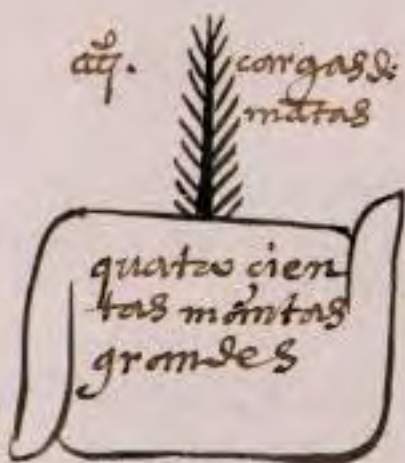 cargas de
mãtas
quatro çien
tas mantas
grandes